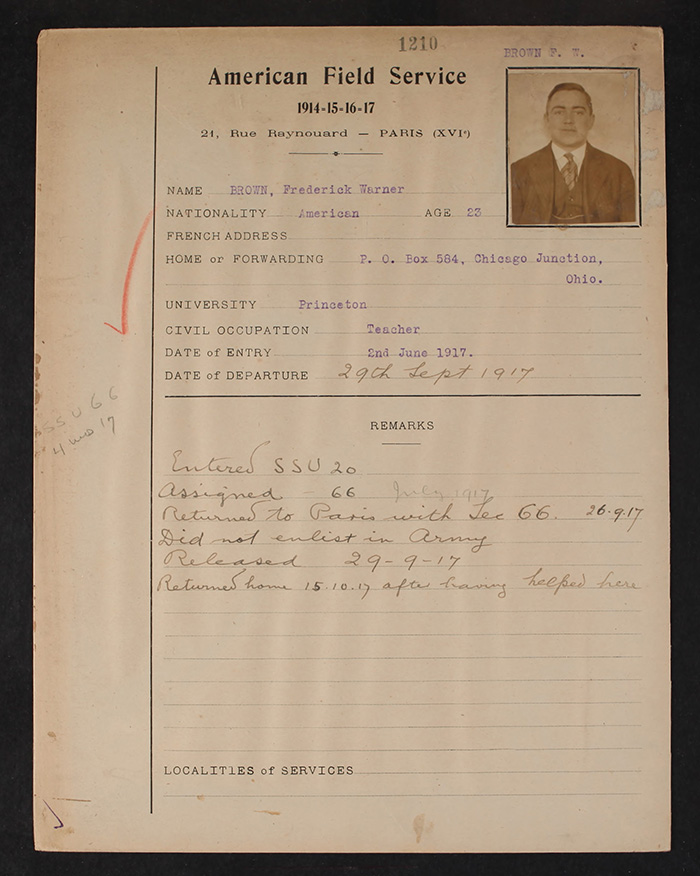 1210
BROWN F. W.
American Field Service
1914-15-16-17
21, Rue Raynouard — PARIS (XVIe)
NAME BROWN, Frederick Warner
NATIONALITY American AGE 23
FRENCH ADDRESS
HOME or FORWARDING P. O. Box 584, Chicago Junction,
Ohio.
UNIVERSITY Princeton
CIVIL OCCUPATION Teacher
DATE of ENTRY 2nd June 1917.
DATE of DEPARTURE 29th Sept 1917
SSU 66
4 mo 17
REMARKS
Entered SSU 20
Assigned - 66 July 1917
Returned to Paris with Sec 66. 26.9.17
Did not enlist in Army
Released 29-9-17
Returned home 15.10.17 after having helped here
LOCALITIES of SERVICES